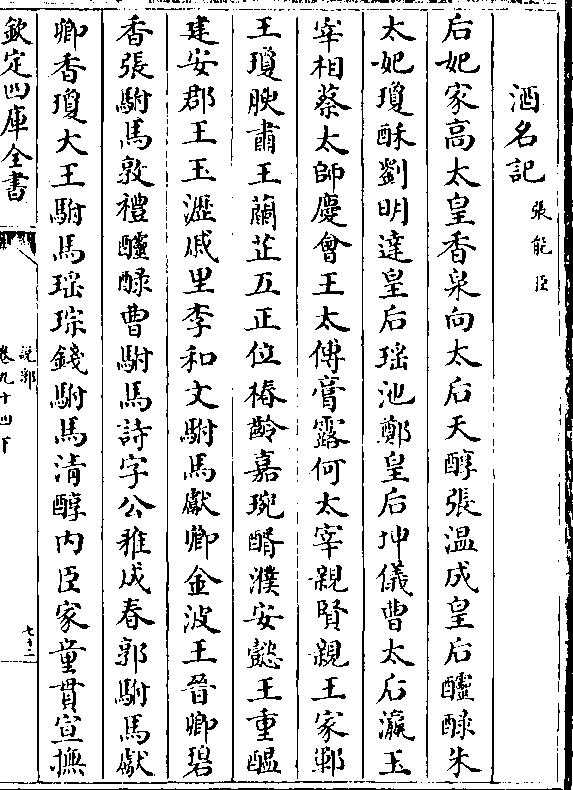 酒名記
張能臣
后妃家高太皇香泉向太后天醇張温成皇后醽醁朱
太妃瓊酥劉明達皇后瑶池鄭皇后坤儀曹太后瀛玉
宰相蔡太師慶會王太傅膏露何太宰親賢親王家鄆
王瓊腴肅王蘭芷五正位椿齡嘉琬醑濮安懿王重醖
建安郡王玉瀝戚里李和文駙馬獻卿金波王晉卿碧
香張駙馬敦禮醽醁曹駙馬詩字公雅成春郭駙馬獻
卿香瓊大王駙馬瑶琮錢駙馬清醇内臣家童貫宣撫
欽定四庫全書
説郛
卷九十四下